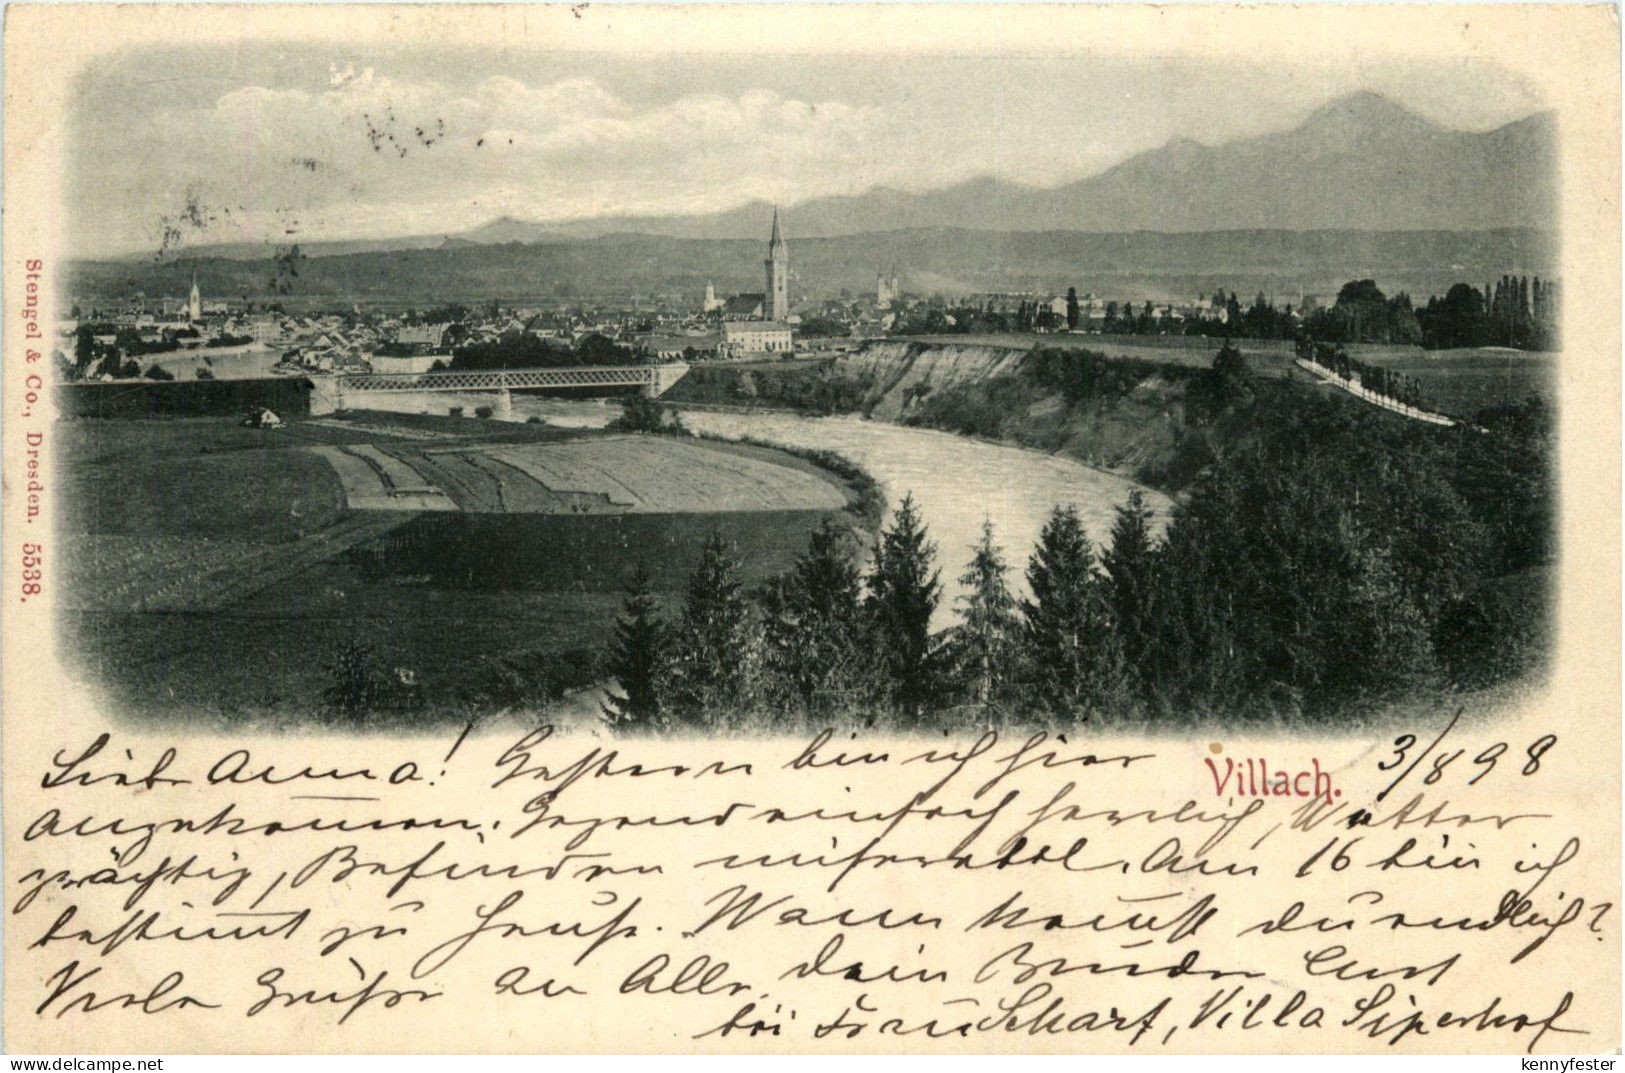 Stengel & Co., Dresden. 5538.
Villach. 3/8 98
Liebe Anna! Gestern bin ich hier
angekommen. Gegend einfach herrlich, Wetter
prächtig, Befinden miserabel. Am 16 bin ich
bestimmt zu Hause. Wann kommst du endlich?
Viele Grüsse an Alle, dein Bruder
bei Frau Scharf, Villa
delcampe.net
kennyfester